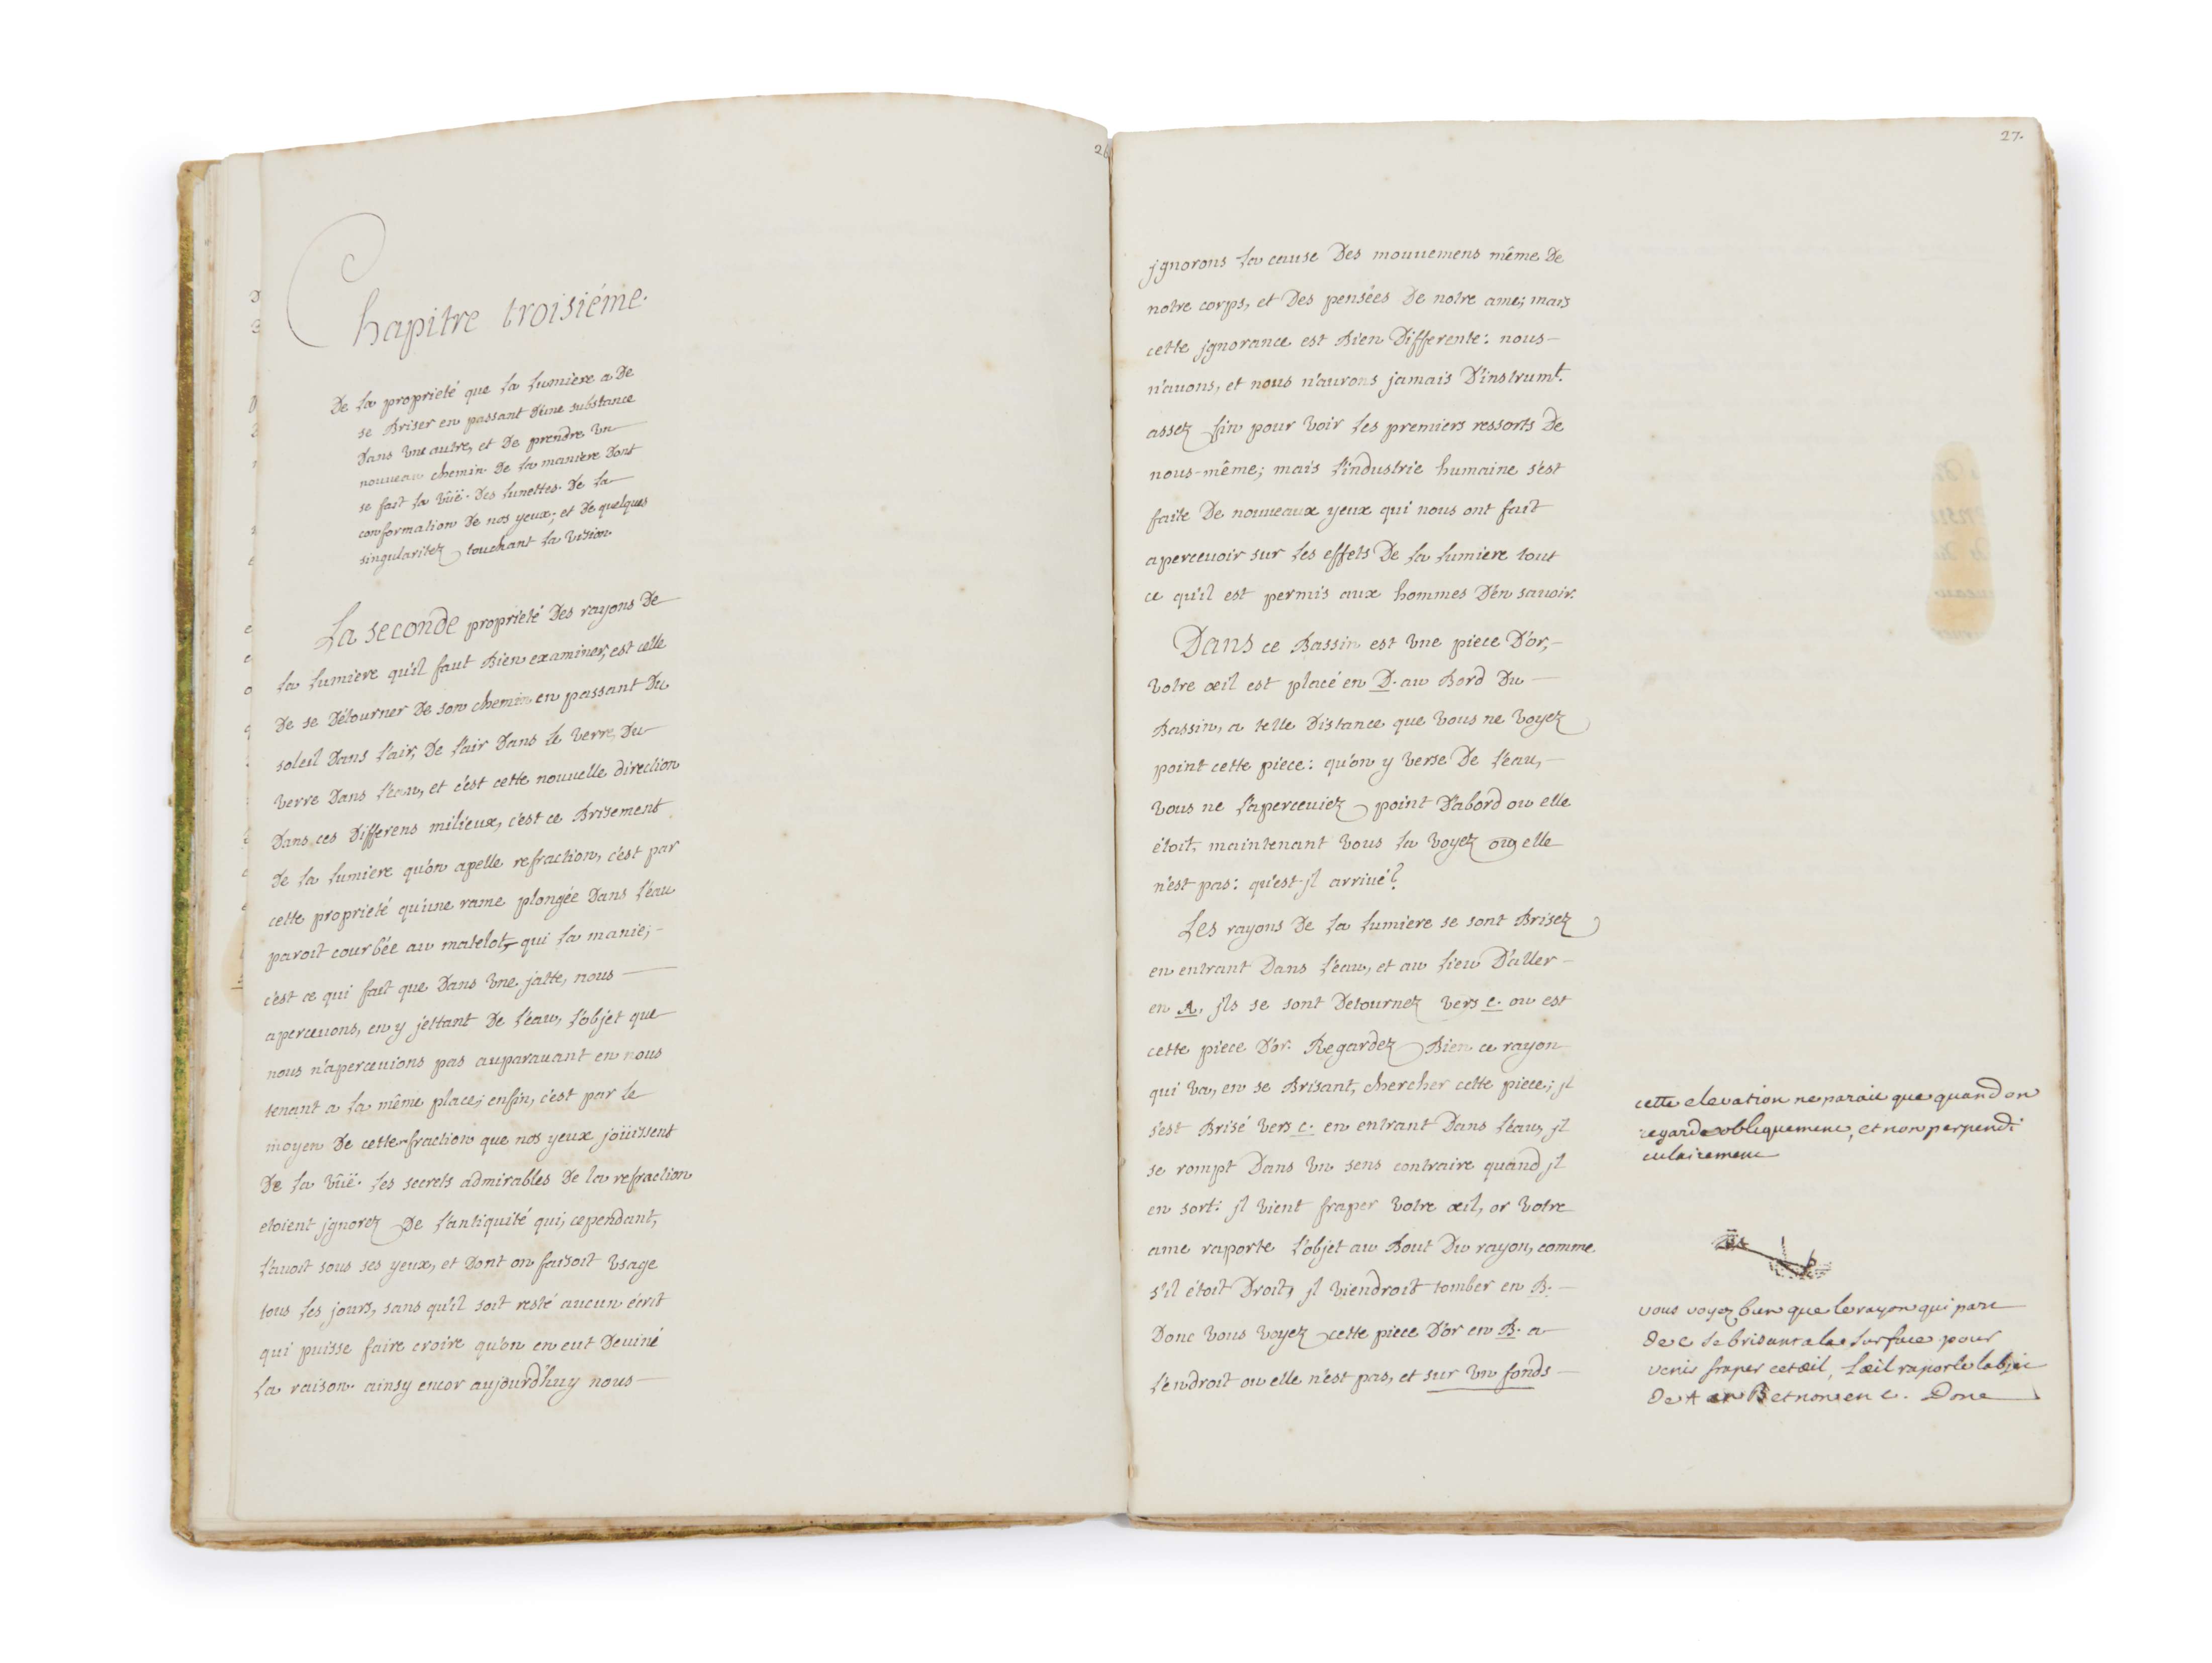 26
Chapitre troisiéme.
De la proprieté que la lumiere a De
se Briser en passant D'une substance
Dans une autre, et De prendre un
nouveau chemin. De la maniere Dont
se fait la vüe. Des lunettes. De la
conformation De nos yeux; et De quelques
singularitez touchant la vision
La seconde proprieté Des rayons De
la lumiere qu'il faut Bien examiner, est celle
De se Détourner De son chemin en passant Du
soleil Dans l'air, De l'air Dans le verre, Du
verre Dans l'eau, et c'est cette nouvelle direction
Dans ces Differens milieux, c'est ce Brisement
De la lumiere qu'on apelle refraction, c'est par
cette proprieté qu'une rame plongée Dans l'eau
paroit courbée au matelot, qui la manie;
c'est ce qui fait que Dans une jatte, nous
apercevons, en y jettant De l'eau, l'objet que
nous n'apercevions pas auparavant en nous
tenant a la même place; enfin, c'est par le
moyen De cette fraction que nos yeux joüissent
De la vüe. les secrets admirables De la refraction
etoient jgnorez De l'antiquité qui, cependant,
l'avoit sous ses yeux, et Dont on faisoit usage
tous les jours, sans qu'il soit resté aucun écrit
qui puisse faire croire qu'on en eut Deviné
la raison. ainsy encor aujourd'huy nous
27.
jgnorons la cause Des mouvemens même De
notre corps, et Des pensées De notre ame; mais
cette jgnorance est Bien Differente: nous
n'avons, et nous n'aurons jamais D'instrumt.
assez fin pour voir les premiers ressorts De
nous-même; mais l'industrie humaine s'est
faite De nouveaux yeux qui nous ont fait
apercevoir sur les effets De la lumiere tout
ce qu'il est permis aux hommes D'en savoir.
Dans ce Bassin est une piece D'or,
votre œil est placé en D. au Bord Du
Bassin, a telle Distance que vous ne voyez
point cette piece: qu'on y verse De l'eau,
vous ne l'aperceviez point D'abord ou elle
étoit, maintenant vous la voyez ou elle
n'est pas: qu'est-jl arrivé?
Les rayons De la lumiere se sont Brisez
en entrant Dans l'eau, et au lieu D'aller
en A, jls se sont Detournez vers c. ou est
cette piece D'or. Regardez Bien ce rayon
qui va, en se Brisant, chercher cette piece; jl
s'est Brisé vers c. en entrant Dans l'eau, jl
se rompt Dans un sens contraire quand jl
en sort: jl vient fraper votre œil, or votre
ame raporte l'objet au Bout Du rayon, comme
s'il étoit Droit, jl viendroit tomber en B.
Donc vous voyez cette piece D'or en B. a
l'endroit ou elle n'est pas, et sur un fonds
cette elevation ne parait que quand on
regarde obliquement, et non perpendi
culairement
vous voyez bien que le rayon qui part
de c se brisant a la surface pour
venir fraper cet œil, l'œil raporte l'objet
de A en B et non en c. Donc